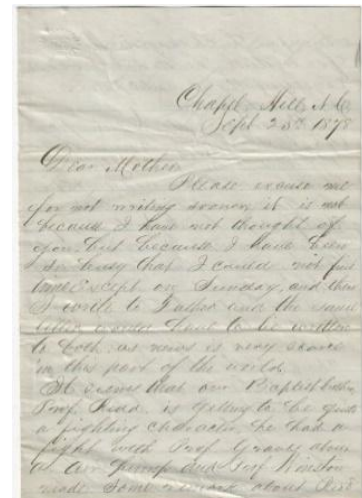 Chapel Hill N C
Sept 23rd 1878
Dear Mother
Please excuse me
for not writing sooner it is not
because I have not thought of
you. but because I have been
so busy that I could not find
time Except on Sunday, and then
I write to Father and the same
letter would have to be written
to both. as news is very scarce
in this part of the world.
It seems that our Baptist
Prof. is getting to be quite
a fighting character, he had a
fight with Prof. Graves about
a Air pump and Prof Winston
made some remark about